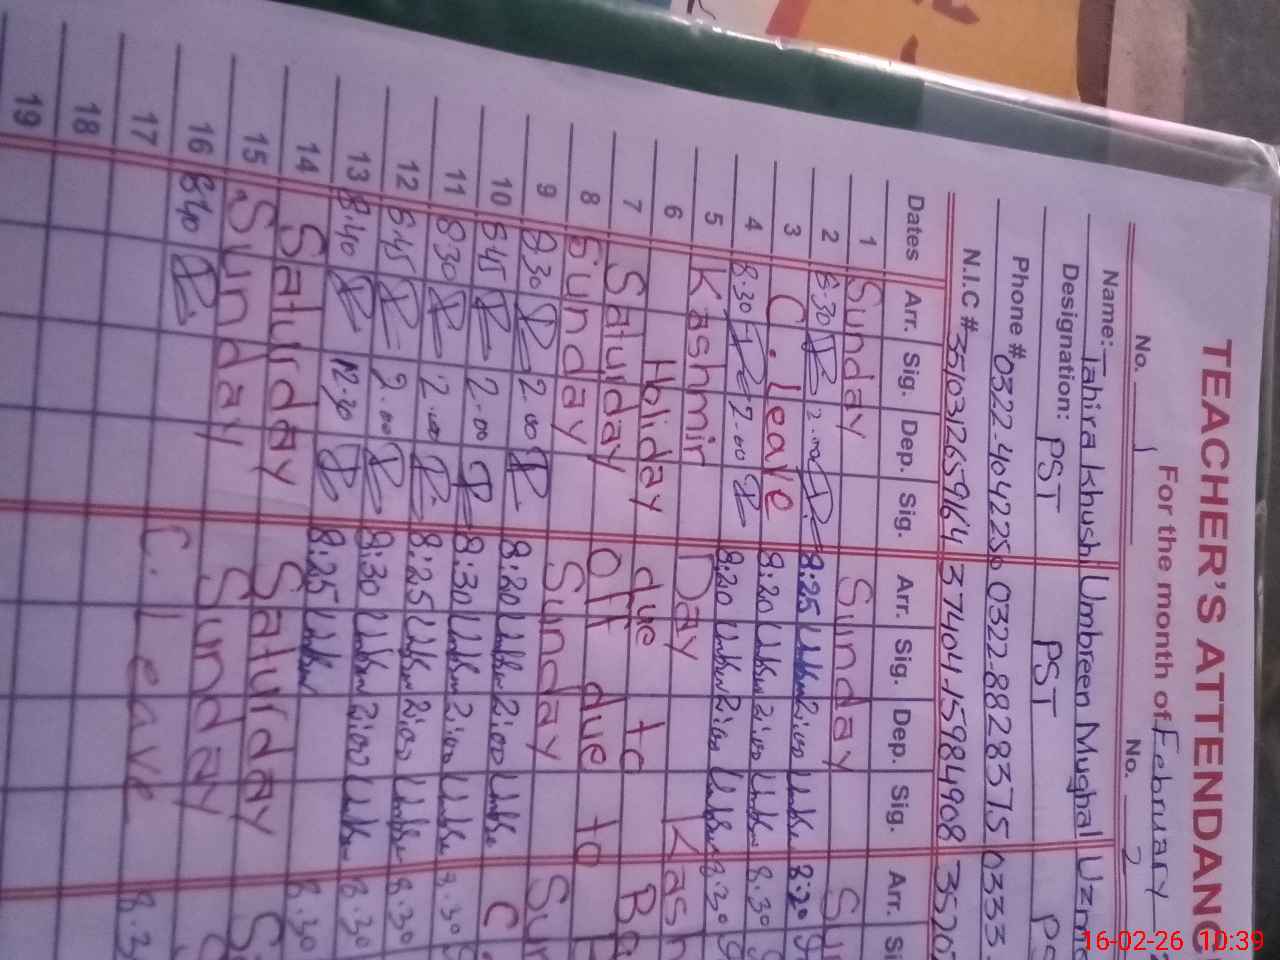 TEACHER'S ATTENDANC
For the month of February
No. 1 No. 2
Name: Tahira Khushi Umbreen Mughal Uzm
Designation: PST PST PS
Phone # 0322-4042250 0322-8828375 0333-
N.I.C # 3510312659964 3740415984908 3520
Dates Arr. Sig. Dep. Sig. Arr. Sig. Dep. Sig. Arr. Si
1 Sunday Sunday Su
2 8:30 2.00 8:25 2:00 8:20
3 C. leave 8:20 2:00 8.30
4 8:30 2.00 8:20 2:00 8.30
5 Kashmir Day Kash
6 Holiday due to Ba
7 Saturday Off due to B
8 Sunday Sunday Sun
9 8:30 2.00 8:20 2:00 C
10 8:45 2.00 8:30 2:00 8.30
11 8:30 2.00 8:25 2:00 8.30
12 8:45 2.00 8:30 2:00 8.30
13 8:40 12:30 8:25 8.30
14 Saturday Saturday S
15 Sunday Sunday S
16 8:40 C. leave 8.3
17
18
19
16-02-26 10:39